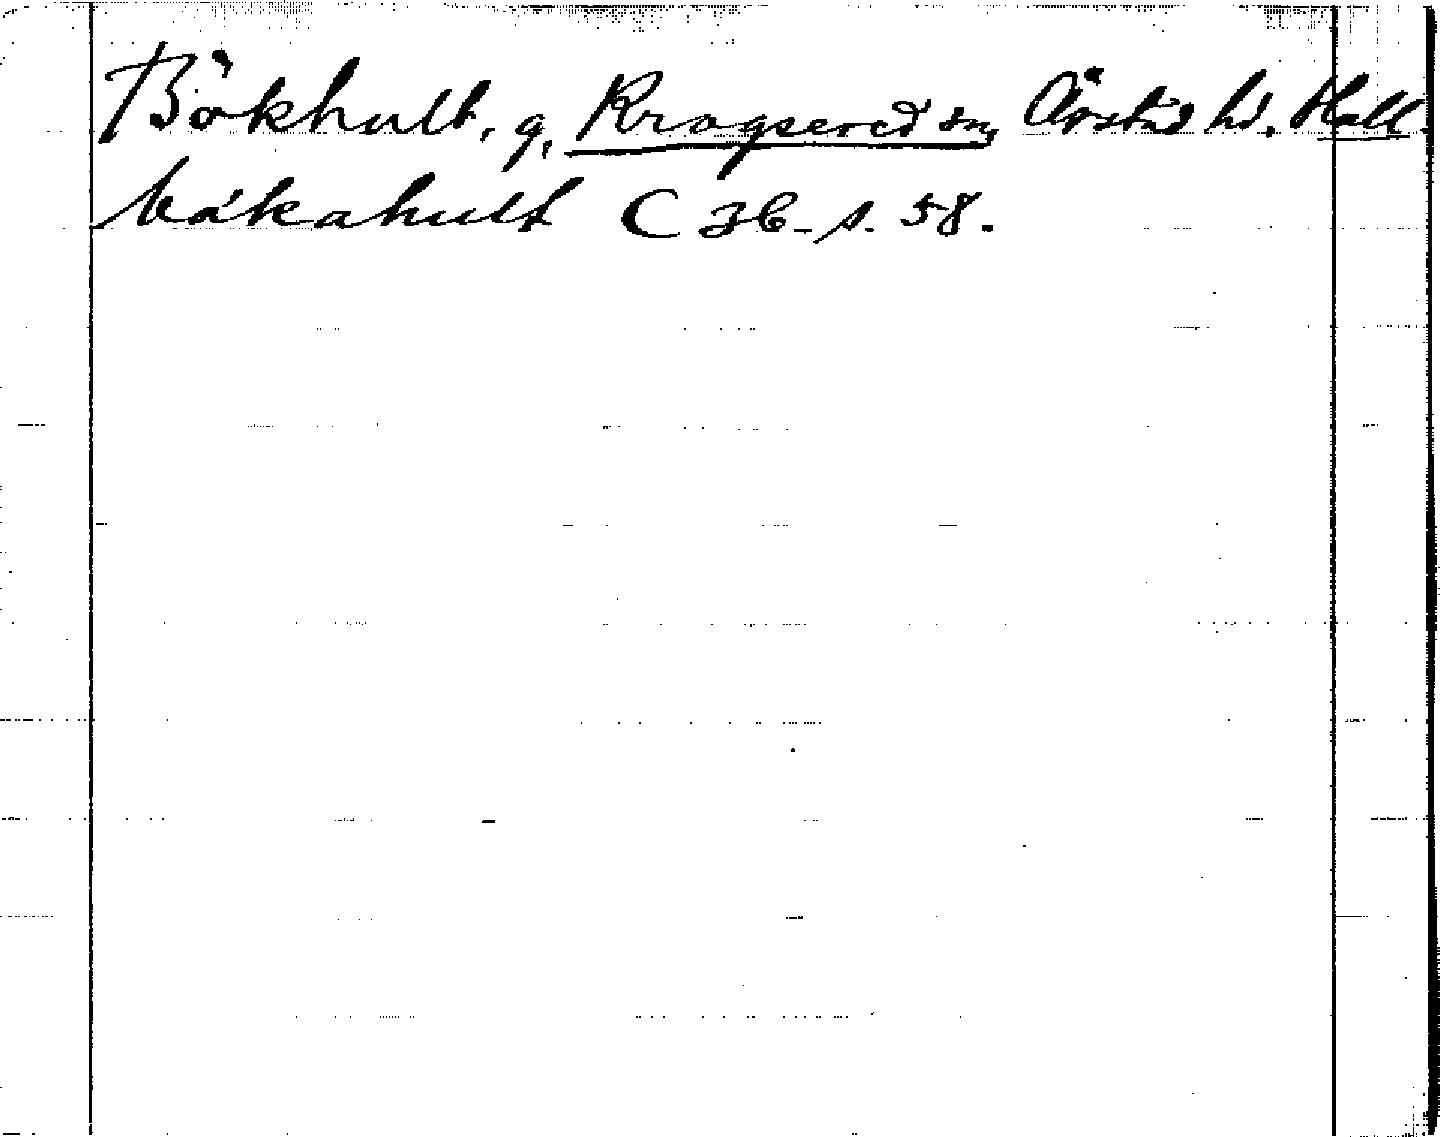 Bökhult, g, Krogsered sn, Årstad hd. Hall.
bákahult C 36 - s. 58.